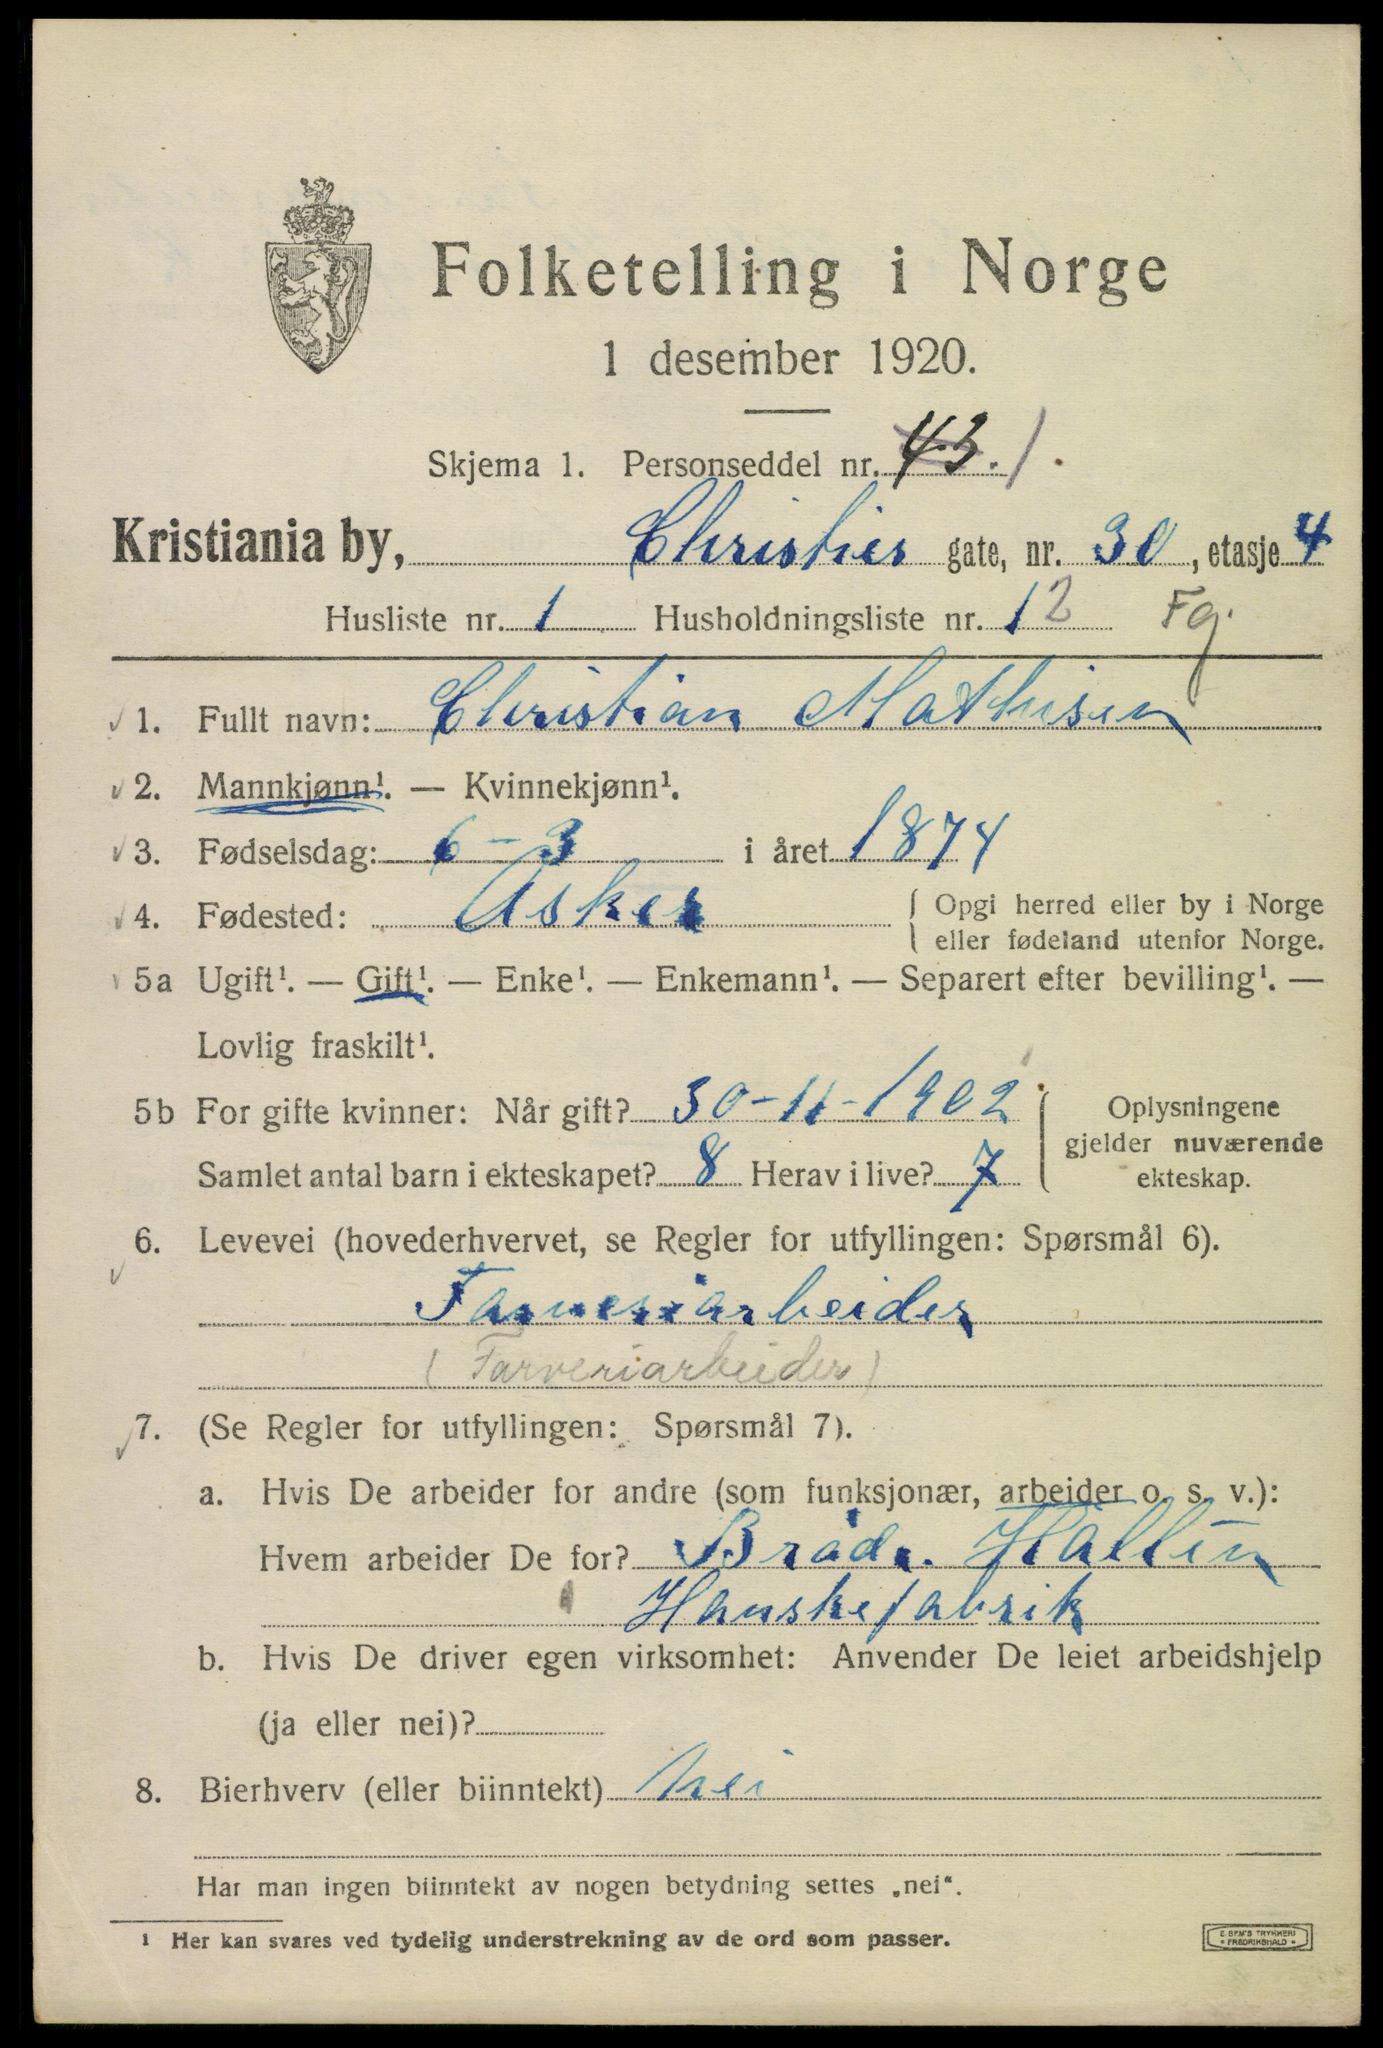 Folketelling i Norge
1 desember 1920.
Skjema 1. Personseddel nr. 43. 1.
Kristiania by, Christies gate, nr. 30, etasje 4
Husliste nr. 1 Husholdningsliste nr. 12 Fg.
1. Fullt navn: Christian Mathisen
2. Mannkjønn¹. — Kvinnekjønn¹.
3. Fødselsdag: 6 - 3 i året 1874
4. Fødested: Asker { Opgi herred eller by i Norge
eller fødeland utenfor Norge.
5a Ugift¹. — Gift¹. — Enke¹. — Enkemann¹. — Separert efter bevilling¹. —
Lovlig fraskilt¹.
5b For gifte kvinner: Når gift? 30-11-1902 { Oplysningene
gjelder nuværende
Samlet antal barn i ekteskapet? 8 Herav i live? 7 ekteskap.
6. Levevei (hovederhvervet, se Regler for utfyllingen: Spørsmål 6).
Farveriarbeider
(Farveriarbeider)
7. (Se Regler for utfyllingen: Spørsmål 7).
a. Hvis De arbeider for andre (som funksjonær, arbeider o. s. v.):
Hvem arbeider De for? Brød. Hallin
Hanskefabrik
b. Hvis De driver egen virksomhet: Anvender De leiet arbeidshjelp
(ja eller nei)?
8. Bierhverv (eller biinntekt) nei
Har man ingen biinntekt av nogen betydning settes „nei“.
¹ Her kan svares ved tydelig understrekning av de ord som passer.
E. SEM'S TRYKKERI
* FREDRIKSHALD *